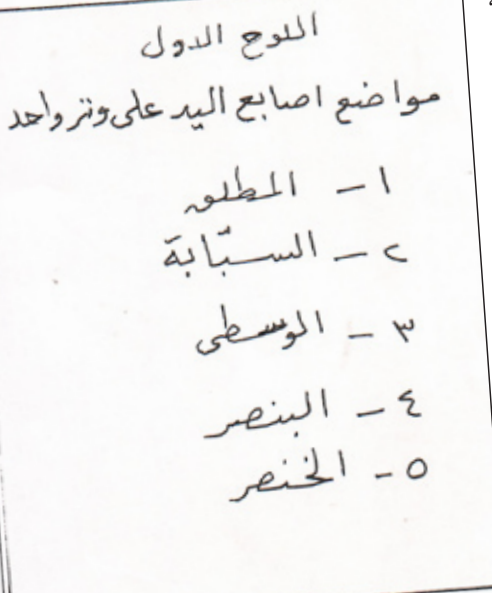 اللوح الاول
مواضع اصابع اليد على وتر واحد
١ - المطلق
٢ - السبّابة
٣ - الوسطى
٤ - البنصر
٥ - الخنصر